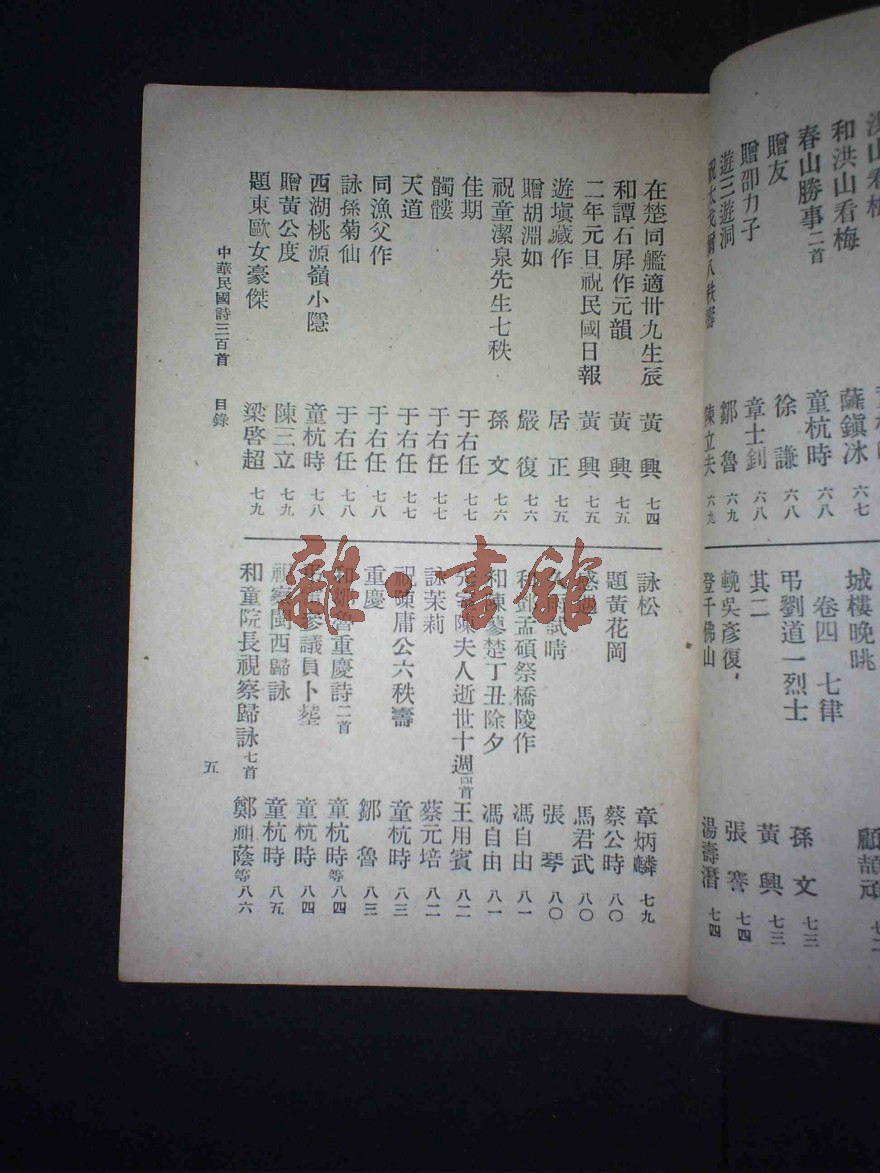 和洪山看梅 薩鎮冰 六七
春山勝事二首 童杭時 六八
贈友 徐謙 六八
贈邵力子 章士釗 六八
遊三遊洞 鄒魯 六九
陳立夫 六九
城樓晚眺
卷四 七律
弔劉道一烈士 孫文 七三
其二 黃興 七三
輓吳彥復 張謇 七四
登千佛山 湯壽潛 七四
在楚同艦適卅九生辰 黃興 七四
和譚石屏作元韻 黃興 七五
二年元旦祝民國日報 黃興 七五
遊塡藏作 居正 七五
贈胡淵如 嚴復 七六
祝童潔泉先生七秩 孫文 七六
佳期 于右任 七七
髑髏 于右任 七七
天道 于右任 七七
同漁父作 于右任 七八
詠孫菊仙 于右任 七八
西湖桃源嶺小隱 童杭時 七八
贈黃公度 陳三立 七九
題東歐女豪傑 梁啓超 七九
詠松 章炳麟 七九
題黃花岡 蔡公時 八〇
感遇 馬君武 八〇
試晴 張琴 八〇
祭橋陵作 馮自由 八一
和陳蓼楚丁丑除夕 馮自由 八一
陳夫人逝世十週四首 王用賓 八二
詠茉莉 蔡元培 八二
祝陳庸公六秩壽 童杭時 八三
重慶 鄒魯 八三
和鄒魯重慶詩二首 童杭時等 八四
參議員卜塟 童杭時 八四
視察閩西歸詠 童杭時 八五
和童院長視察歸詠七首 鄭祖蔭等 八六
中華民國詩三百首 目錄 五
雜·書館